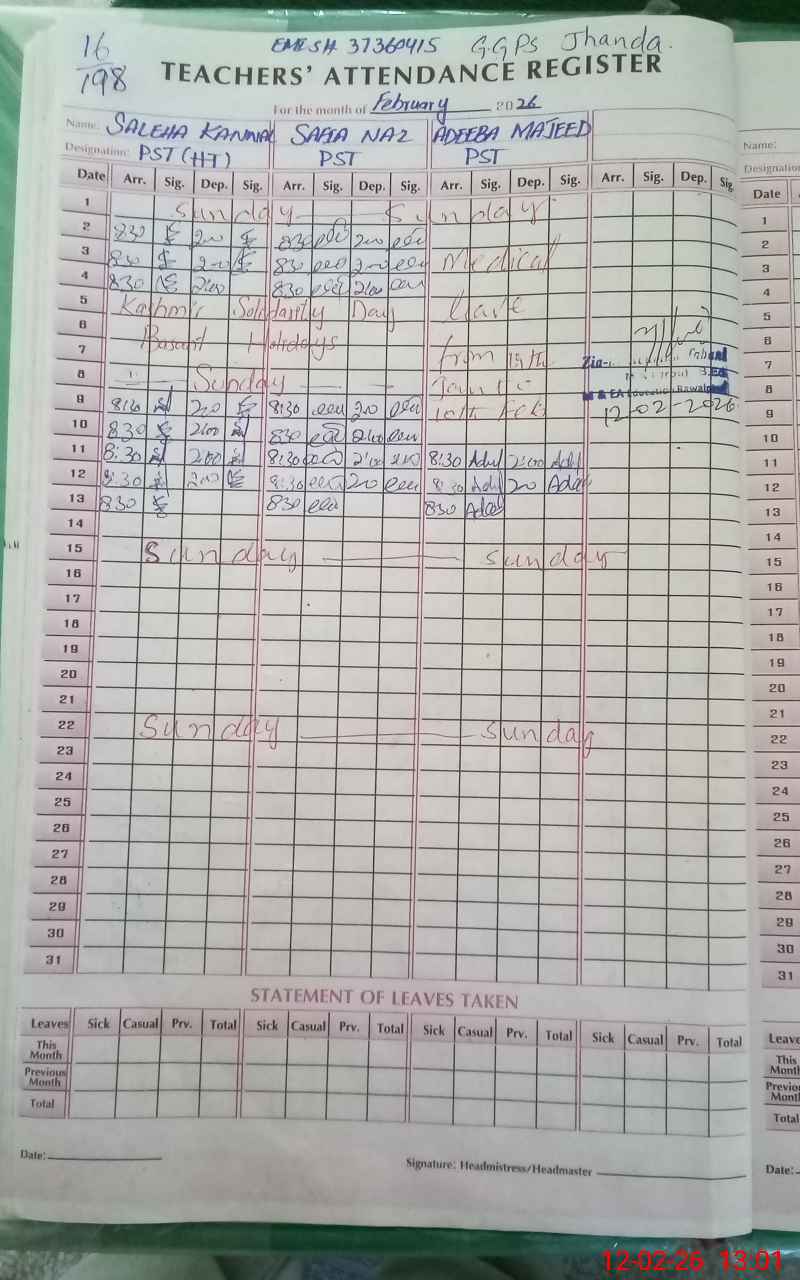 16
198
EMESH 37360415 G.G.P.S Jhanda.
TEACHERS' ATTENDANCE REGISTER
For the month of February 2026
Name: SALEHA KANWAL SAFIA NAZ ADEEBA MAJEED
Designation: PST (HT) PST PST
Date Arr. Sig. Dep. Sig. Arr. Sig. Dep. Sig. Arr. Sig. Dep. Sig. Arr. Sig. Dep. Sig.
1 Sunday Sunday
2 830 200 830 200
3 830 200 830 200 Medical
4 830 2:00 830 2:00
5 Kashmir Solidarity Day leave
6
7 Basant Holidays from 15th
8 Sunday
9 8:30 200 8:30 200 10th Feb 12-02-2026
10 830 2:00 830 2:00
11 8:30 200 8:30 2:00 8:30 2:00
12 8:30 200 8:30 200 8:30 20
13 830 830 830
14
15 Sunday Sunday
16
17
18
19
20
21
22 Sunday Sunday
23
24
25
26
27
28
29
30
31
STATEMENT OF LEAVES TAKEN
Leaves Sick Casual Prv. Total Sick Casual Prv. Total Sick Casual Prv. Total Sick Casual Prv. Total
This Month
Previous Month
Total
Date:
Signature: Headmistress/Headmaster
Name:
Date Arr
1
2
3
4
5
6
7
8
9
10
11
12
13
14
15
16
17
18
19
20
21
22
23
24
25
26
27
28
29
30
31
This
Total
Date:
12-02-26 13:01